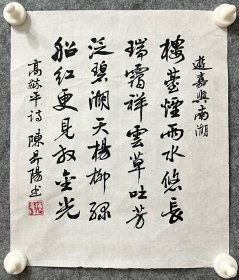 遊嘉興南湖
樓臺煙雨水悠長
瑞靄祥雲草吐芳
泛碧湖天楊柳綠
船紅更見放金光
高毓平詩 陳昇陽書